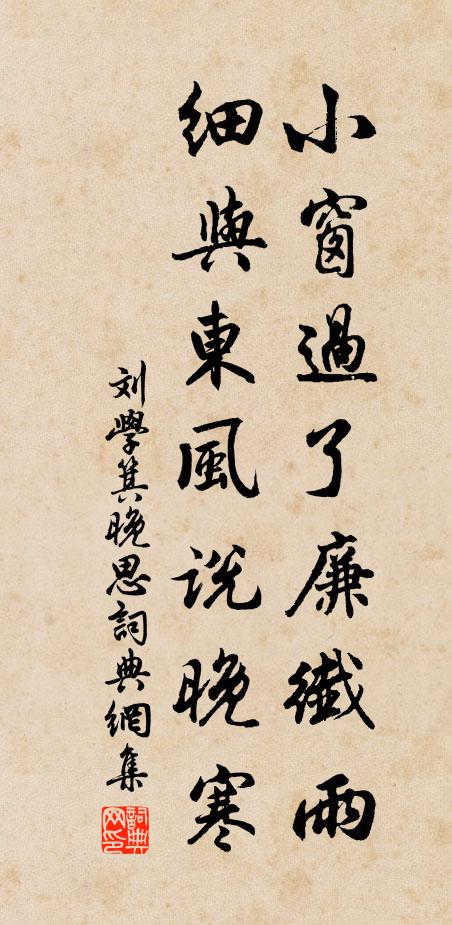 小窗過了廉纖雨
細與東風説晚寒
刘學箕晚思詞典網集
詞典网印